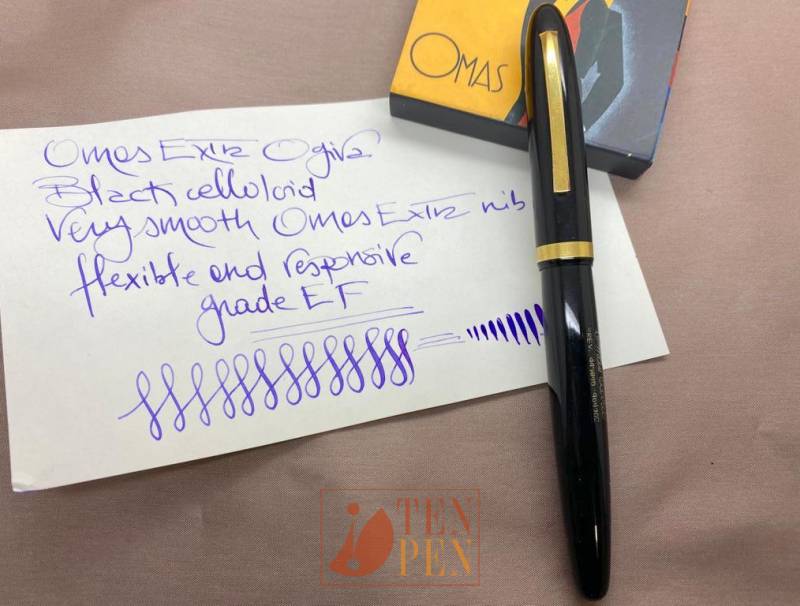 OMAS
Omas Extra Ogiva
Black celloloid
Very smooth Omas Extra nib
flexible and responsive
grade EF
TEN
PEN